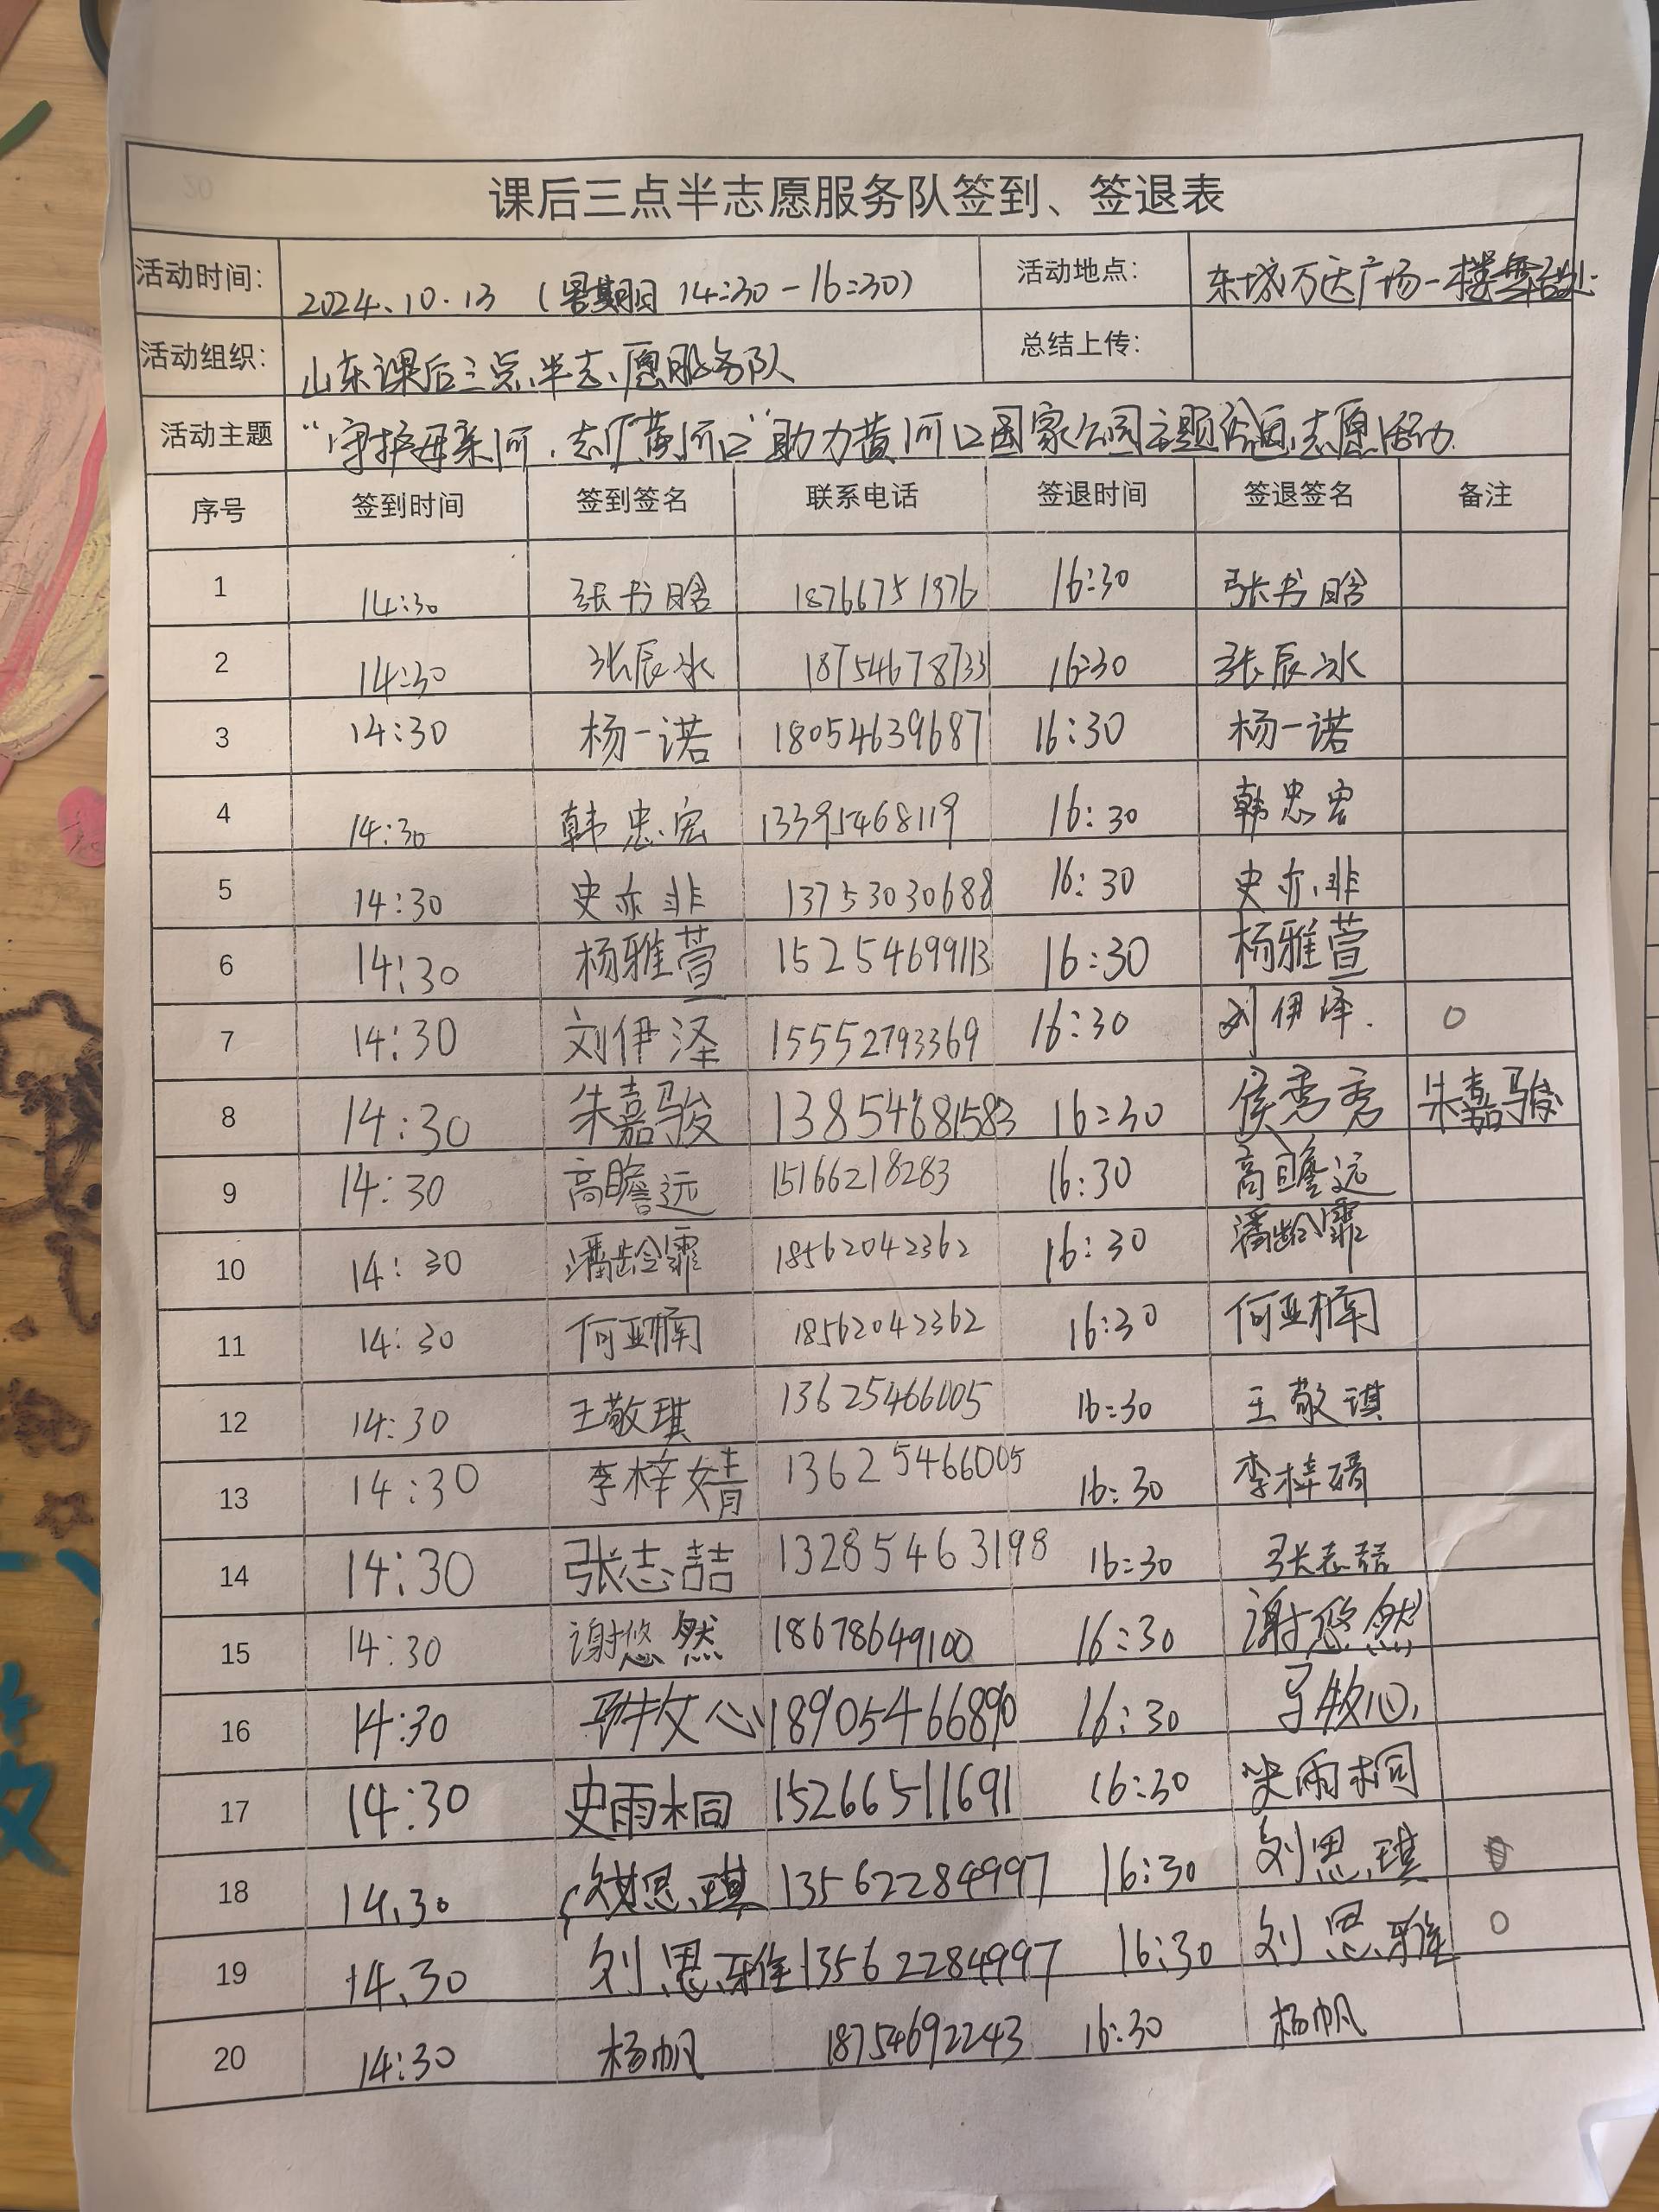 课后三点半志愿服务队签到、签退表
活动时间： 2024.10.13 （星期日 14:30-16:30） 活动地点： 东城万达广场一楼舞台处
活动组织： 山东课后三点半志愿服务队 总结上传：
活动主题 “守护母亲河，志广黄河口”助力黄河口国家公园主题绘画志愿活动
序号 签到时间 签到签名 联系电话 签退时间 签退签名 备注
1 14:30 张书晗 18766751976 16:30 张书晗
2 14:30 张辰冰 18754678733 16:30 张辰冰
3 14:30 杨一诺 18054639687 16:30 杨一诺
4 14:30 韩忠宏 13395468119 16:30 韩忠宏
5 14:30 史亦非 13753030688 16:30 史亦非
6 14:30 杨雅萱 15254699113 16:30 杨雅萱
7 14:30 刘伊泽 15552793369 16:30 刘伊泽
8 14:30 朱嘉骏 13854681583 16:30 侯秀秀 朱嘉骏
9 14:30 高瞻远 15166218283 16:30 高瞻远
10 14:30 潘龄霏 18562042362 16:30 潘龄霏
11 14:30 何亚楠 18562042362 16:30 何亚楠
12 14:30 王敬琪 13625466005 16:30 王敬琪
13 14:30 李梓婧 13625466005 16:30 李梓婧
14 14:30 张志喆 13285463198 16:30 张志喆
15 14:30 谢悠然 18678649100 16:30 谢悠然
16 14:30 18905466890 16:30
17 14:30 史雨桐 15266511691 16:30 史雨桐
18 14.30 思琪 13562284997 16:30 刘思琪
19 14.30 刘思雅 13562284997 16:30 刘思雅
20 14:30 杨帆 18754692243 16:30 杨帆